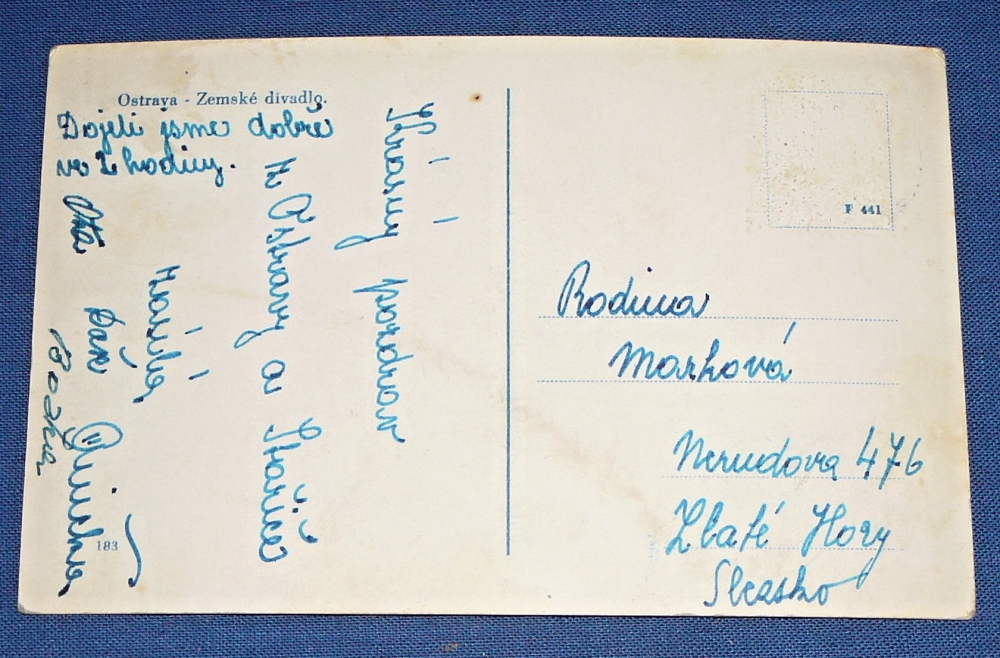 Ostrava - Zemské divadlo.
Dojeli jsme dobře
ve 2 hodiny.
Krásný pozdrav
z Ostravy a Stařiče
Vám
Božka
183
F 441
Rodina
Marková
Nerudova 476
Zlaté Hory
Slezsko